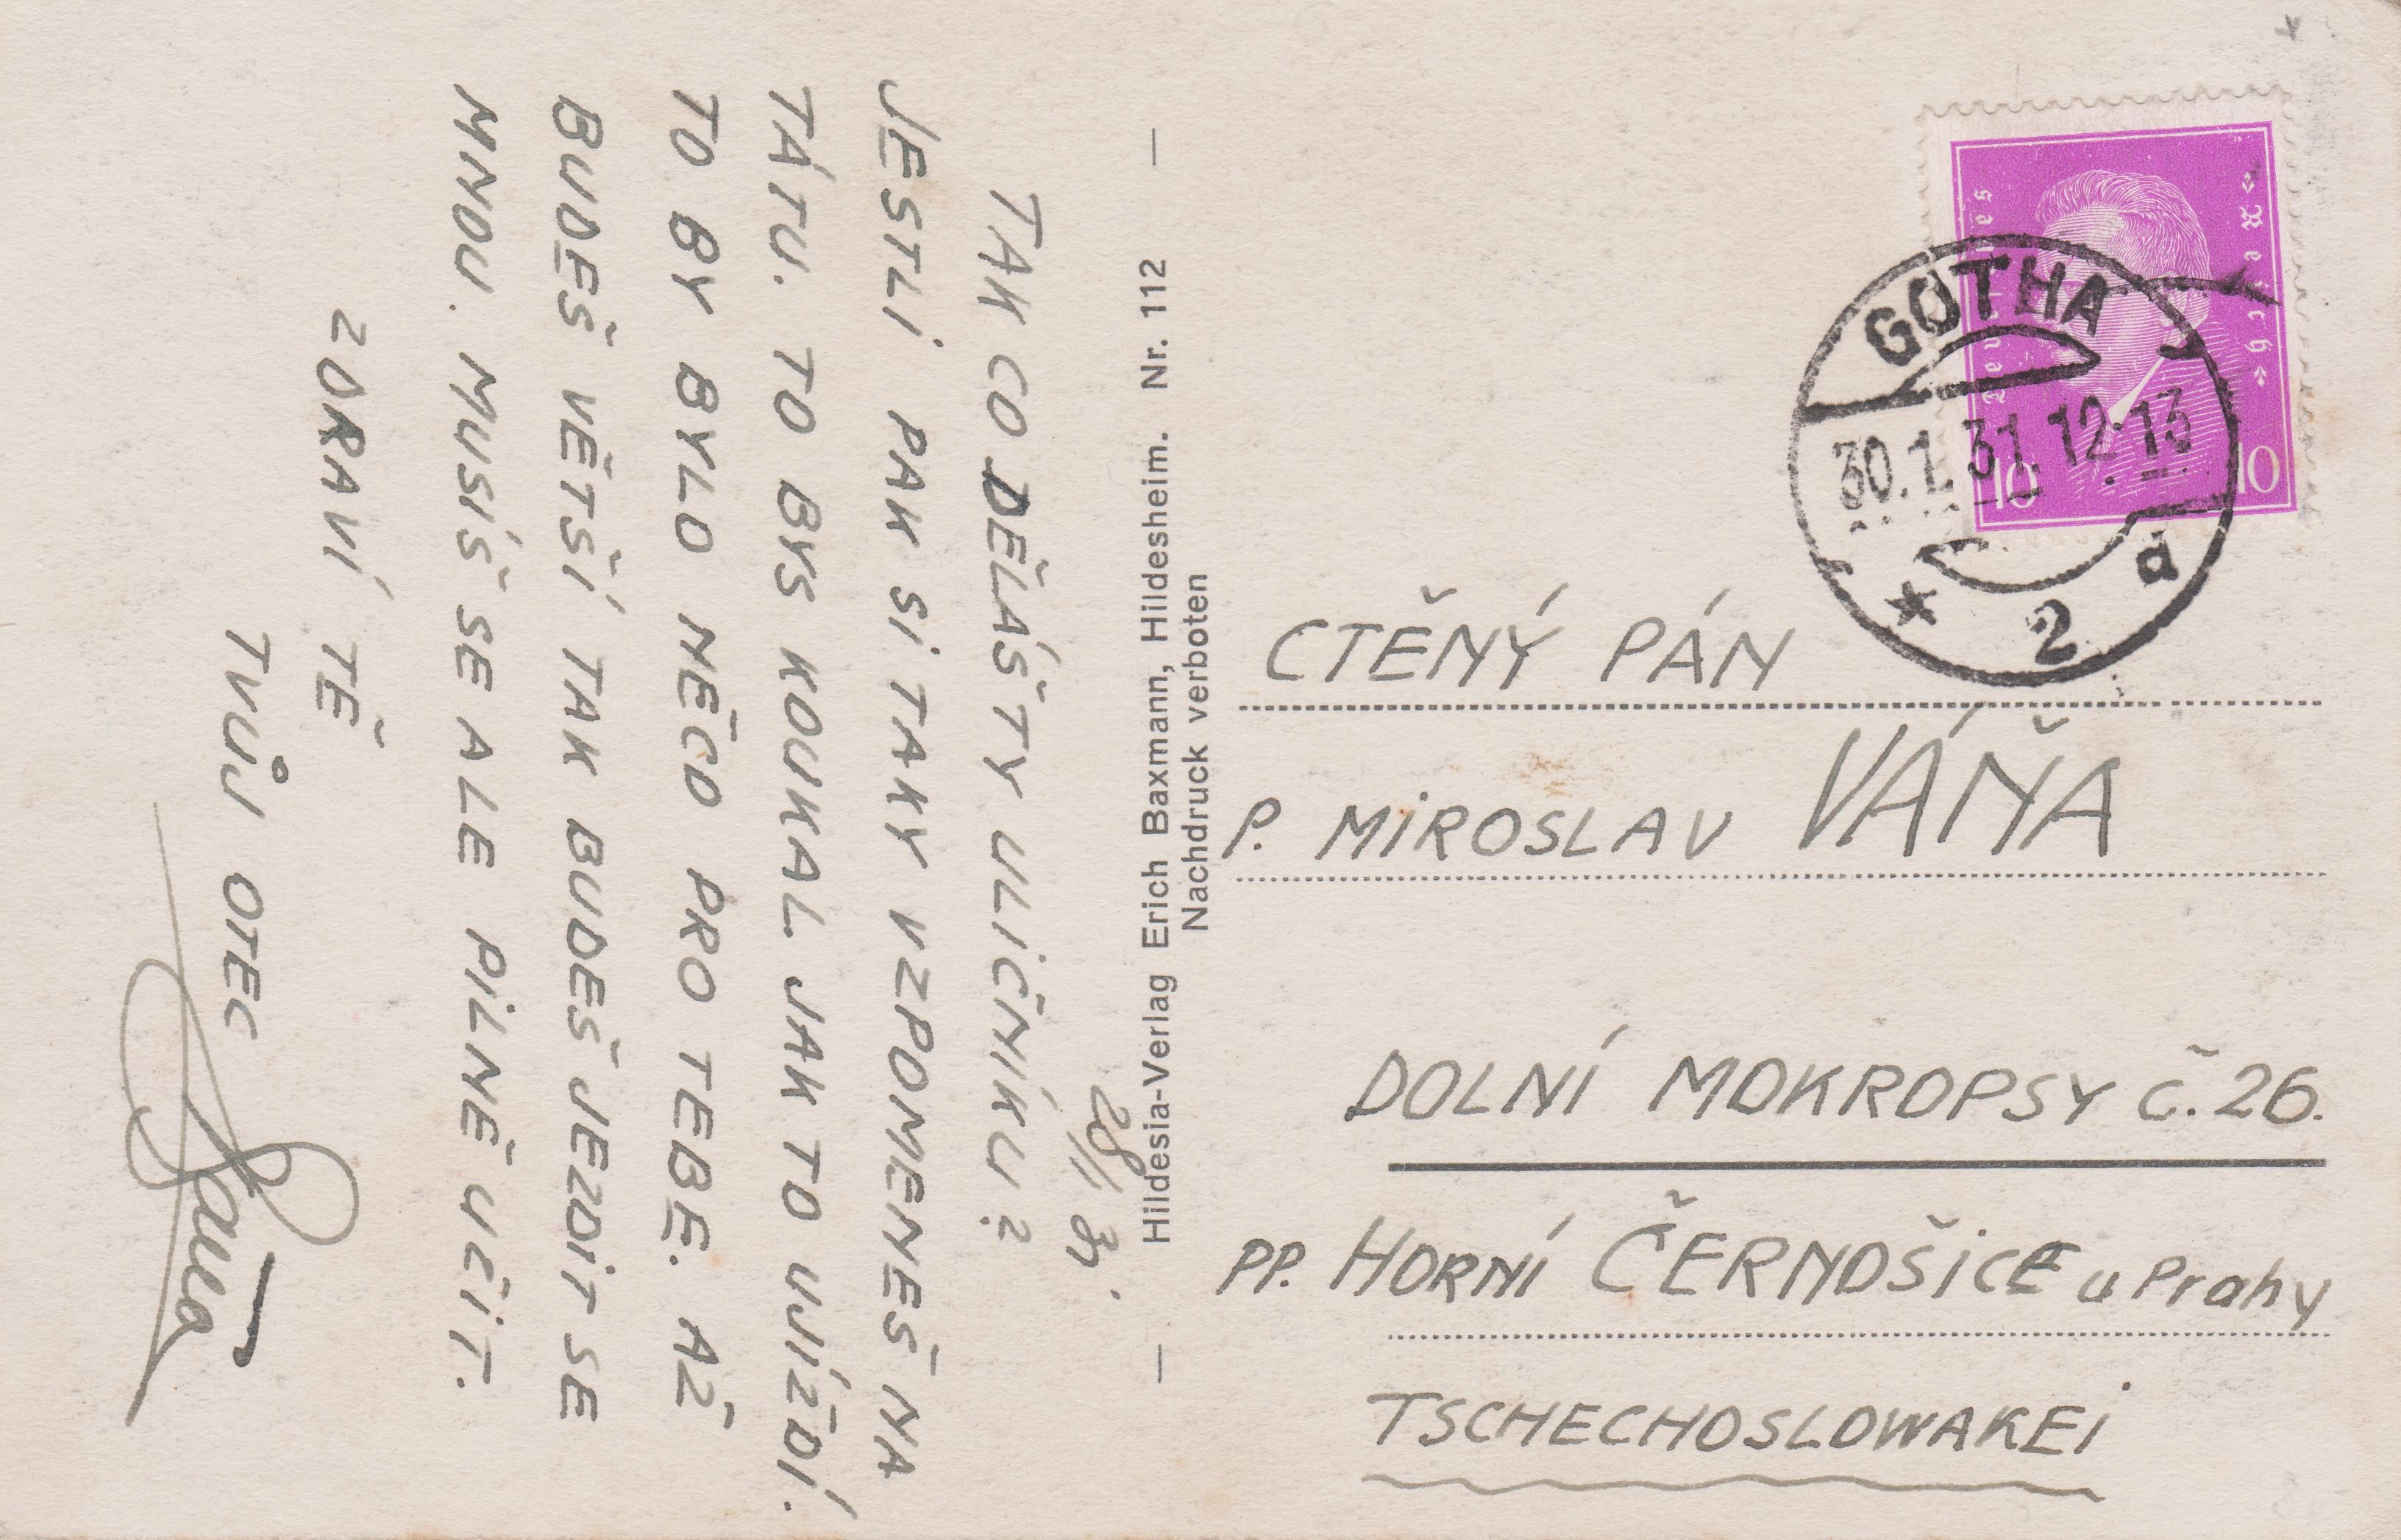 28/1 31.
TAK CO DĚLÁŠ TY ULIČNÍKU?
JESTLI PAK SI TAKY VZPOMENEŠ NA
TÁTU. TO BYS KOUKAL JAK TO UJÍŽDÍ.
TO BY BYLO NĚCO PRO TEBE. AŽ
BUDEŠ VĚTŠÍ TAK BUDEŠ JEZDIT SE
MNOU. MUSÍŠ SE ALE PILNĚ UČIT.
ZDRAVÍ TĚ
TVŮJ OTEC
Váňa
Hildesia-Verlag Erich Baxmann, Hildesheim. Nr. 112
Nachdruck verboten
Deutsches
Reich
10 10
GOTHA
30.1.31.12-13
* 2 d
CTĚNÝ PÁN
P. MIROSLAV VÁŇA
DOLNÍ MOKROPSY č. 26.
PP. HORNÍ ČERNOŠICE u Prahy
TSCHECHOSLOWAKEI